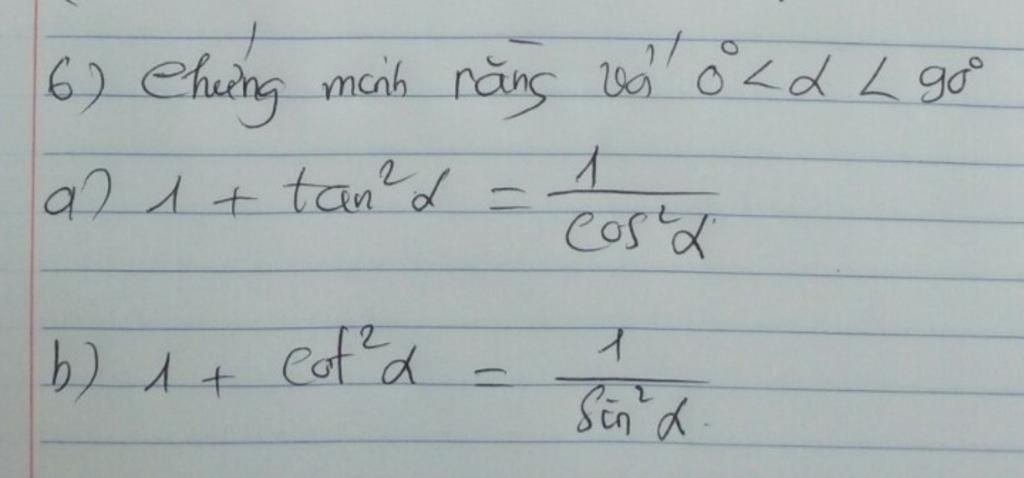 6) Chứng minh rằng với 0° < α < 90°
a) 1 + tan²α = 1/cos²α
b) 1 + cot²α = 1/sin²α.